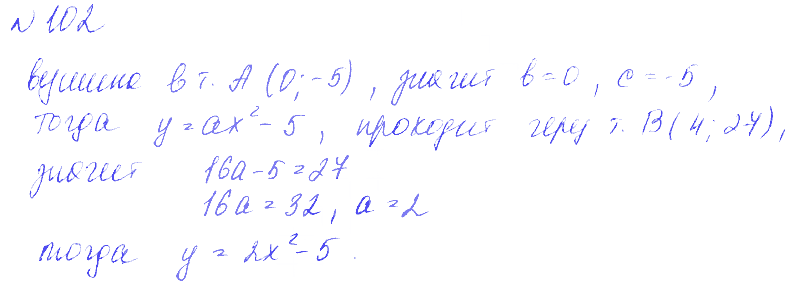 № 102
вершина в т. A (0; -5), значит в=0, с=-5,
тогда y = ax² - 5, проходит через т. B (4; 27),
значит 16a - 5 = 27
16a = 32, a = 2
тогда y = 2x² - 5.